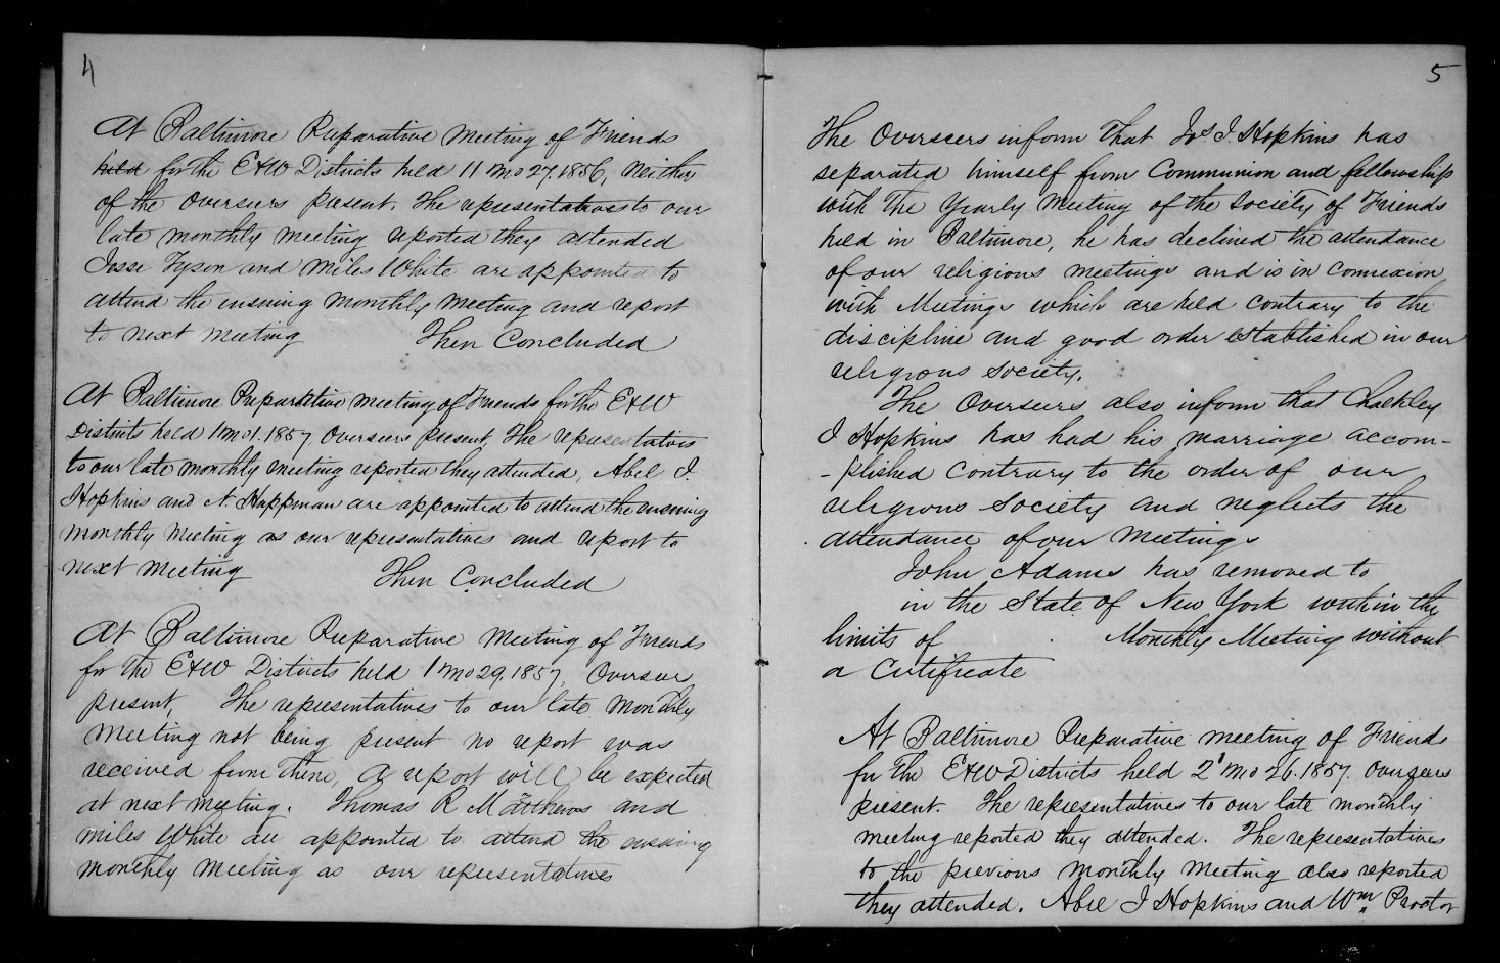 4
At Baltimore Preparative Meeting of Friends
held for the E & W Districts held 11 mo 27. 1856, Neither
of the Overseers present. The representatives to our
late monthly meeting reported they attended
Jesse Tyson and Miles White are appointed to
attend the ensuing monthly meeting and report
to next meeting Then Concluded
At Baltimore Preparative Meeting of Friends for the E & W
Districts held 1 mo 1. 1857, Overseers present, The representatives
to our late monthly meeting reported they attended, Abel J.
Hopkins and N. Happman are appointed to attend the ensuing
monthly Meeting as our representatives and report to
next meeting Then Concluded
At Baltimore Preparative Meeting of Friends
for the E & W Districts held 1 mo 29. 1857, Overseer
present, The representatives to our late monthly
Meeting not being present no report was
received from them, A report will be expected
at next meeting. Thomas R Matthews and
Miles White are appointed to attend the ensuing
monthly meeting as our representatives
5
The Overseers inform that Jos. J. Hopkins has
separated himself from Communion and fellowship
with the Yearly Meeting of the Society of Friends
held in Baltimore, he has declined the attendance
of our religious meetings and is in connexion
with Meetings which are held contrary to the
discipline and good order established in our
religious society.
The Overseers also inform that Chalkley
J Hopkins has had his marriage accom-
-plished contrary to the order of our
religious Society and neglects the
attendance of our Meetings
John Adams has removed to
in the State of New York within the
limits of Monthly Meeting without
a Certificate
At Baltimore Preparative Meeting of Friends
for the E & W Districts held 2 mo 26. 1857. Overseers
present. The representatives to our late monthly
meeting reported they attended. The representatives
to the previous monthly Meeting also reported
they attended. Abel J Hopkins and Wm Proctor